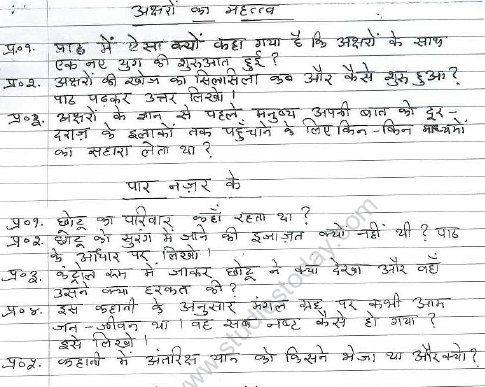 अक्षरों का महत्त्व
प्र०१. पाठ में ऐसा क्यों कहा गया है कि अक्षरों के साथ
एक नए युग की शुरुआत हुई?
प्र०२. अक्षरों की खोज का सिलसिला कब और कैसे शुरु हुआ?
पाठ पढ़कर उत्तर लिखो।
प्र०३. अक्षरों के ज्ञान से पहले मनुष्य अपनी बात को दूर-
दराज़ के इलाकों तक पहुँचाने के लिए किन-किन माध्यमों
का सहारा लेता था?
पार नज़र के
प्र०१. छोटू का परिवार कहाँ रहता था?
प्र०२. छोटू को सुरंग में जाने की इजाज़त क्यों नहीं थी? पाठ
के आधार पर लिखो।
प्र०३. कंट्रोल रूम में जाकर छोटू ने क्या देखा और वहाँ
उसने क्या हरकत की?
प्र०४. इस कहानी के अनुसार मंगल ग्रह पर कभी आम
जन-जीवन था। वह सब नष्ट कैसे हो गया?
इसे लिखो।
प्र०५. कहानी में अंतरिक्ष यान को किसने भेजा था और क्यो?
www.studiestoday.com